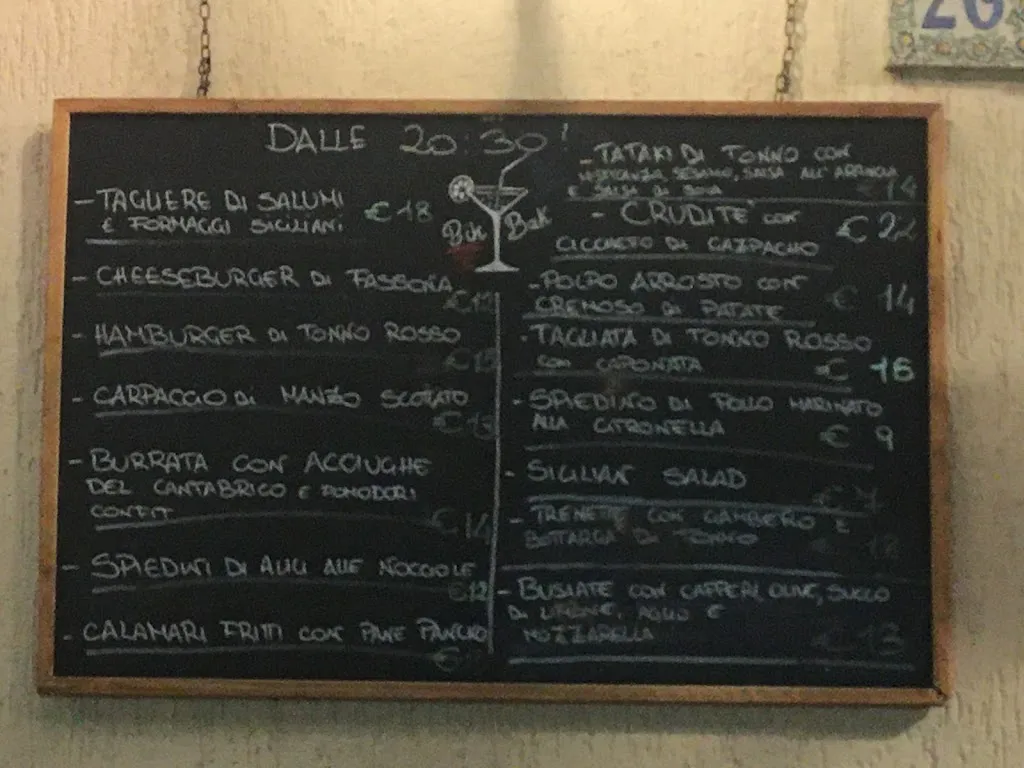 26
DALLE 20:30!
- TAGLIERE DI SALUMI
E FORMAGGI SICILIANI € 18
- CHEESEBURGER DI FASSONA
- HAMBURGER DI TONNO ROSSO
- CARPACCIO DI MANZO
- BURRATA CON ACCIUGHE
DEL CANTABRICO E POMODORI
CONFIT
€ 14
- SPIEDINI DI ALICI ALLE NOCCIOLE
€ 12
- CALAMARI FRITTI CON PANE PANCHO
€
Bik Bak
- TATAKI DI TONNO CON
SESAMO, SALSA ALL' ARANCIA
E SALSA DI SOIA € 14
- CRUDITE' CON
GAZPACHO € 22
- POLPO ARROSTO CON
CREMOSO DI PATATE € 14
- TAGLIATA DI TONNO ROSSO
CON CAPONATA € 16
- SPIEDINO DI POLLO MARINATO
ALLA CITRONELLA € 9
- SICILIAN SALAD
€
- TRENETTE CON GAMBERO E
BOTTARGA DI TONNO
- BUSIATE CON CAPPERI, OLIVE, SUCCO
DI LIMONE, AGLIO E
MOZZARELLA € 13